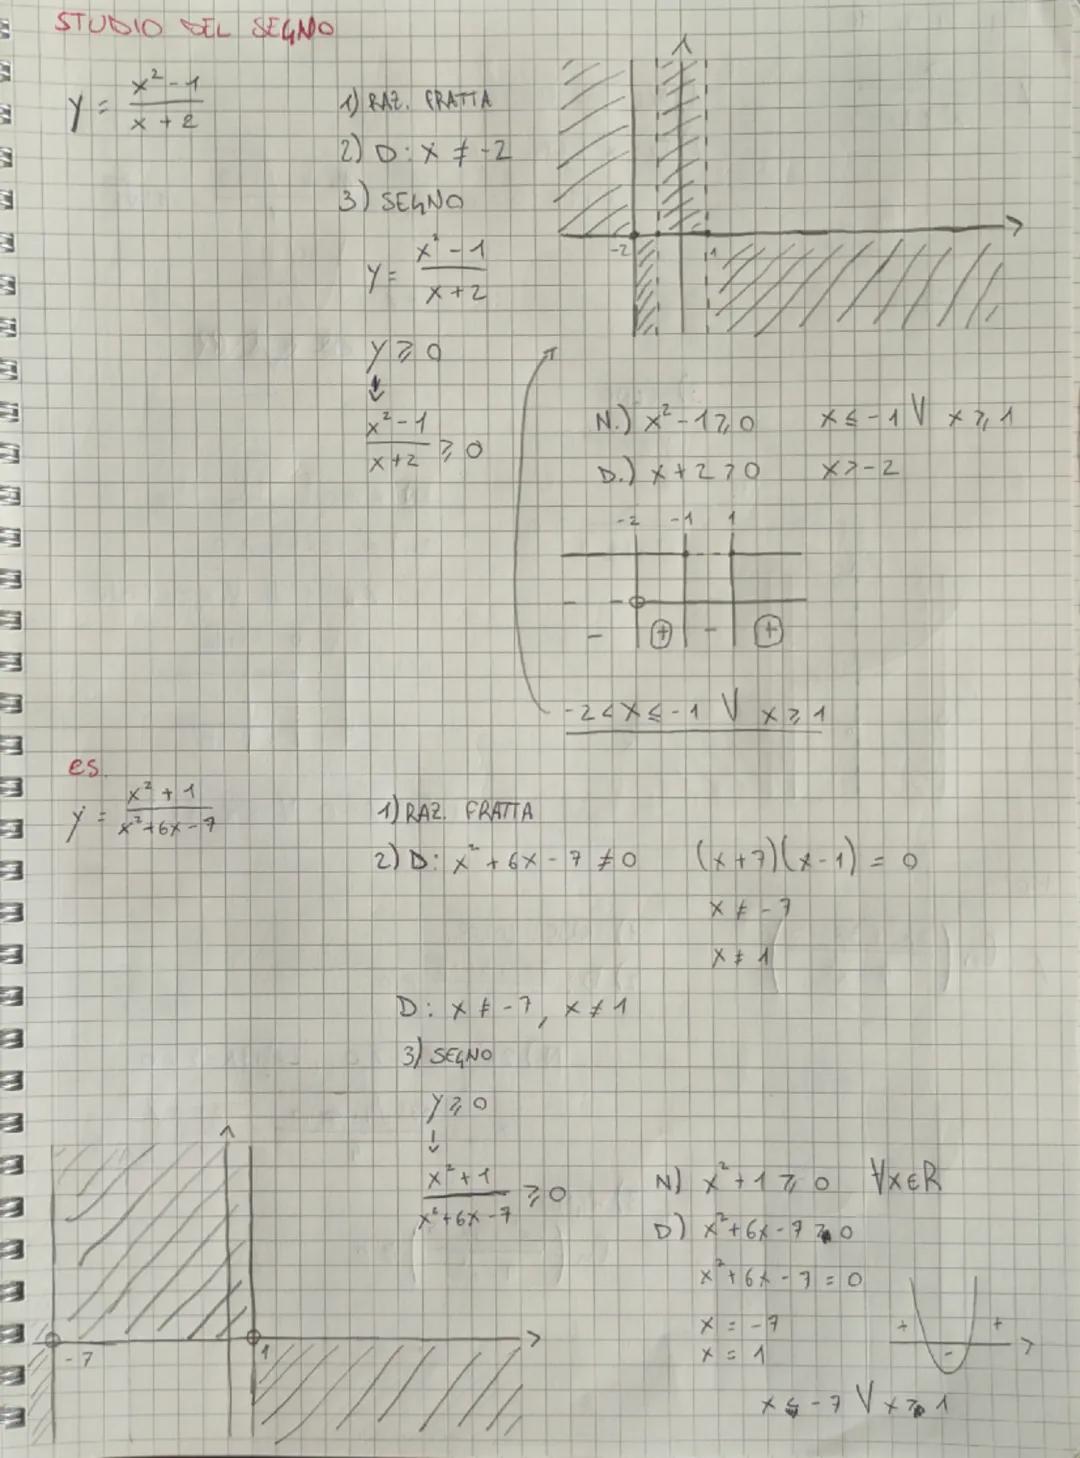 STUDIO DEL SEGNO
y = (x² - 1)/(x + 2)
1) RAZ. FRATTA
2) D: x ≠ -2
3) SEGNO
y = (x² - 1)/(x + 2)
y ⩾ 0
↓
(x² - 1)/(x + 2) ⩾ 0
-2 1
N.) x² - 1 ⩾ 0 x ≤ -1 ∨ x ⩾ 1
D.) x + 2 > 0 x > -2
-2 -1 1
- + - +
-2 < x ≤ -1 ∨ x ⩾ 1
es.
y = (x² + 1)/(x² + 6x - 7)
1) RAZ. FRATTA
2) D: x² + 6x - 7 ≠ 0 (x + 7)(x - 1) = 0
x ≠ -7
x ≠ 1
D: x ≠ -7, x ≠ 1
3) SEGNO
y ⩾ 0
↓
(x² + 1)/(x² + 6x - 7) ⩾ 0
N) x² + 1 ⩾ 0 ∀x∈R
D) x² + 6x - 7 > 0
x² + 6x - 7 = 0
x = -7
x = 1
+ - +
x < -7 ∨ x > 1
-7 1